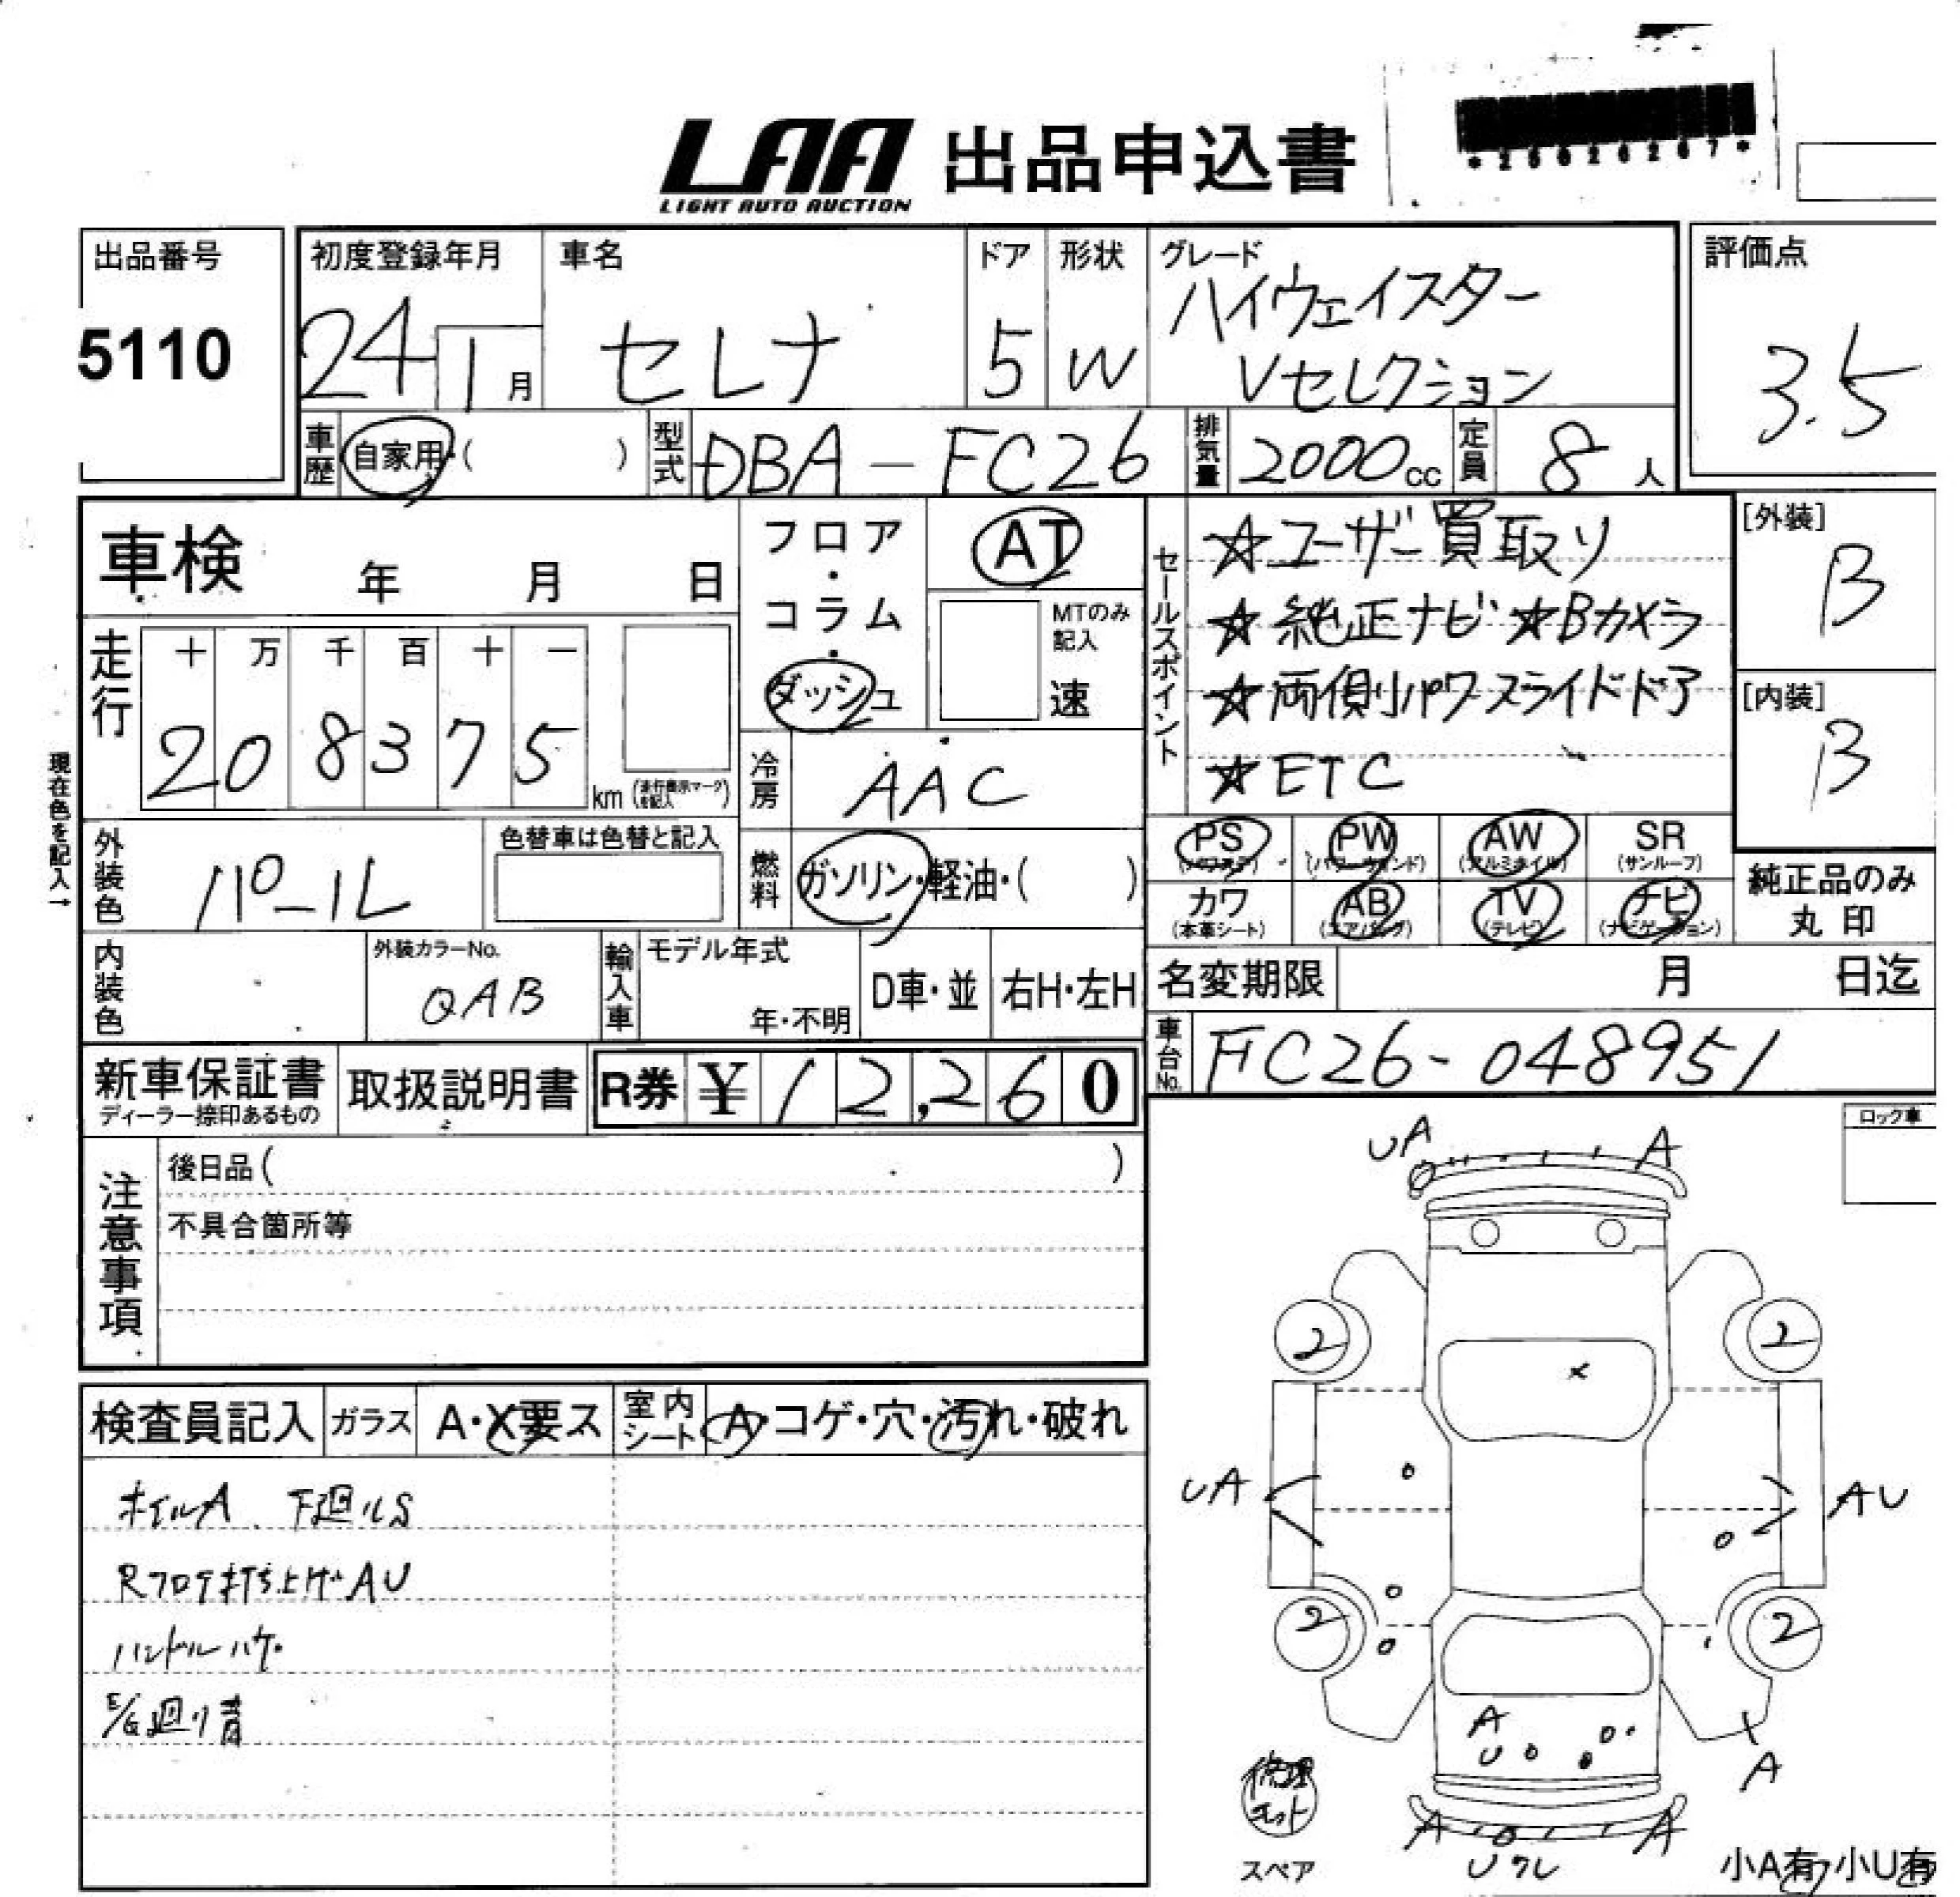 LAA 出品申込書
LIGHT AUTO AUCTION
*25026267*
出品番号
5110
初度登録年月
24 1月
車名
セレナ
ドア
5
形状
W
グレード
ハイウェイスター
Vセレクション
評価点
3.5
車歴 自家用・( )
型式 DBA-FC26
排気量 2000cc
定員 8人
車検 年 月 日
フロア・コラム・ダッシュ
AT
MTのみ記入
速
セールスポイント
☆ユーザー買取り
☆純正ナビ ☆Bカメラ
☆両側パワースライドドア
☆ETC
[外装]
B
[内装]
B
走行
十 万 千 百 十 一
2 0 8 3 7 5 km
現在色を記入→
冷房 AAC
外装色 パール
色替車は色替と記入
燃料 ガソリン・軽油・( )
PS PW AW SR
(パワステ) (パワーウィンド) (アルミホイル) (サンルーフ)
カワ AB TV ナビ
(本革シート) (エアバッグ) (テレビ) (ナビゲーション)
純正品のみ
丸印
内装色
外装カラーNo.
QAB
輸入車
モデル年式
年・不明
D車・並
右H・左H
名変期限 月 日迄
車台No. FC26-048951
新車保証書
ディーラー捺印あるもの
取扱説明書
R券 ¥12,260
注意事項
後日品( )
不具合箇所等
ロック車
UA A
2 2
x
UA AU
2 2
A
U
A
A A
Uワレ
修理キット
スペア
小A有 小U有
検査員記入
ガラス A・X要ス
室内シート A・コゲ・穴・汚れ・破れ
ホイルA 下廻りS
Rフロア打ち上げAU
ハンドルハゲ
E/G廻り音